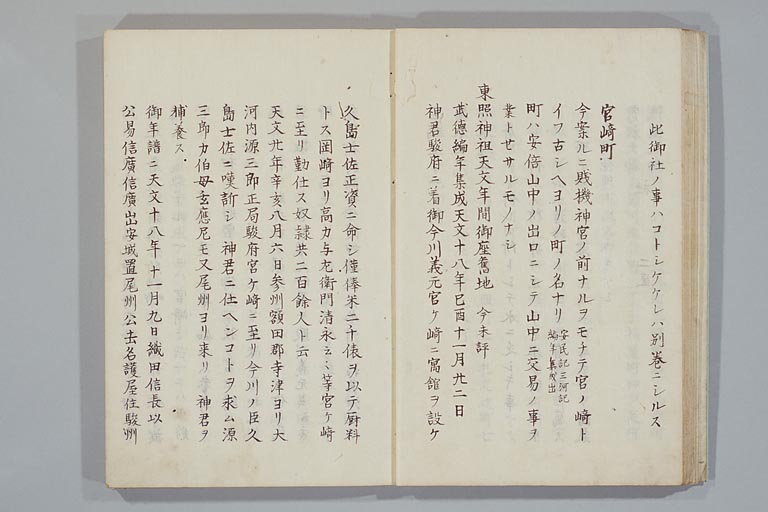 此御社ノ事ハコトシケケレハ別巻ニシルス
宮﨑町
今案ルニ賎機神宮ノ前ナルヲモチテ宮ノ﨑ト
イフ古シヘヨリノ町ノ名ナリ
安民記三河記
編年集成出
町ハ安倍山中ノ出口ニシテ山中ニ交易ノ事ヲ
業トセサルモノナシ
東照神祖天文年間御座舊地 今未評
武徳編年集成天文十八年己酉十一月廿二日
神君駿府ニ着御今川義元宮ケ﨑ニ寓舘ヲ設ケ
久島士佐正資ニ命シ僅俸米二千俵ヲ以テ厨料
トス岡﨑ヨリ高力与左衛門清永云々等宮ケ﨑
ニ至リ勤仕ス奴隷共二百餘人ト云
天文廿年辛亥八月六日参州額田郡寺津ヨリ大
河内源三郎正局駿府宮ケ﨑ニ至リ今川ノ臣久
島士佐ニ嘆訴シ神君ニ仕ヘンコトヲ求ム源
三郎カ伯母玄應尼モ又尾州ヨリ来リ神君ヲ
捕養ス
御年譜ニ天文十八年十一月九日織田信長以
公易信廣信廣出安城置尾州公去名護屋住駿州